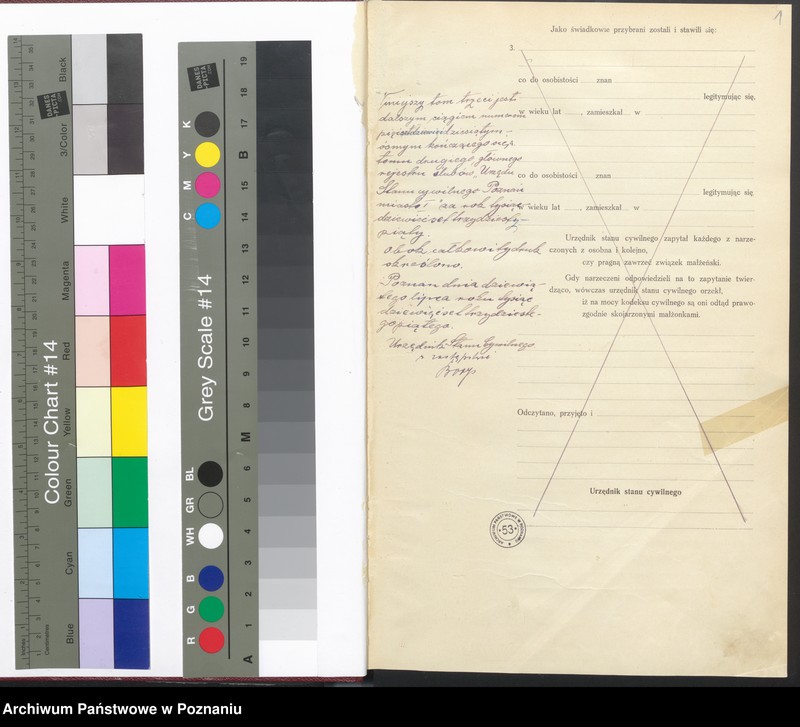 Black
3/Color
White
Magenta
Red
Yellow
Green
Cyan
Blue
Colour Chart #14
DANES
PICTA
.com
Inches
Centimetres
Grey Scale #14
DANES
PICTA
.com
K
Y
M
C
BL
GR
WH
B
G
R
19
18
17
B
15
14
13
12
11
10
9
8
M
6
5
4
3
2
1
A
1
Jako świadkowie przybrani zostali i stawili się:
3.
co do osobistości znan
legitymując się,
w wieku lat , zamieszkał w
co do osobistości znan
legitymując się
w wieku lat , zamieszkał w
Urzędnik stanu cywilnego zapytał każdego z narze-
czonych z osobna i kolejno,
czy pragną zawrzeć związek małżeński.
Gdy narzeczeni odpowiedzieli na to zapytanie twier-
dząco, wówczas urzędnik stanu cywilnego orzekł,
iż na mocy kodeksu cywilnego są oni odtąd prawo-
zgodnie skojarzonymi małżonkami.
Odczytano, przyjęto i
Urzędnik stanu cywilnego
Niniejszy tom trzeci jest
dalszym ciągiem numerem
dziesiątym-
ósmym kończącego się
tomu drugiego głównego
rejestru ślubów, Urzędu
Stanu cywilnego Poznań
miasto za rok tysiąc
dziewięćset trzydziesty-
piąty.
Obok całkowity druk
skreślono.
Poznań dnia dziewią-
tego lipca roku tysiąc
dziewięćset trzydzieste-
go piątego.
Urzędnik Stanu Cywilnego
w zastępstwie
ARCHIWUM PAŃSTWOWE W POZNANIU
53
Archiwum Państwowe w Poznaniu